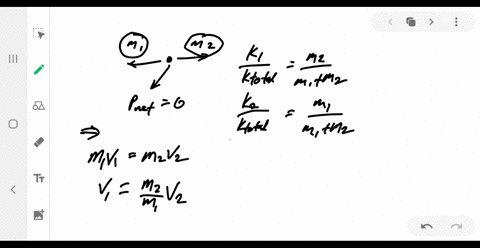 m₁ m₂
Pnet = 0
⇒
m₁V₁ = m₂V₂
V₁ = m₂/m₁ V₂
K₁/Ktotal = m₂/m₁+m₂
K₂/Ktotal = m₁/m₁+m₂
Tt